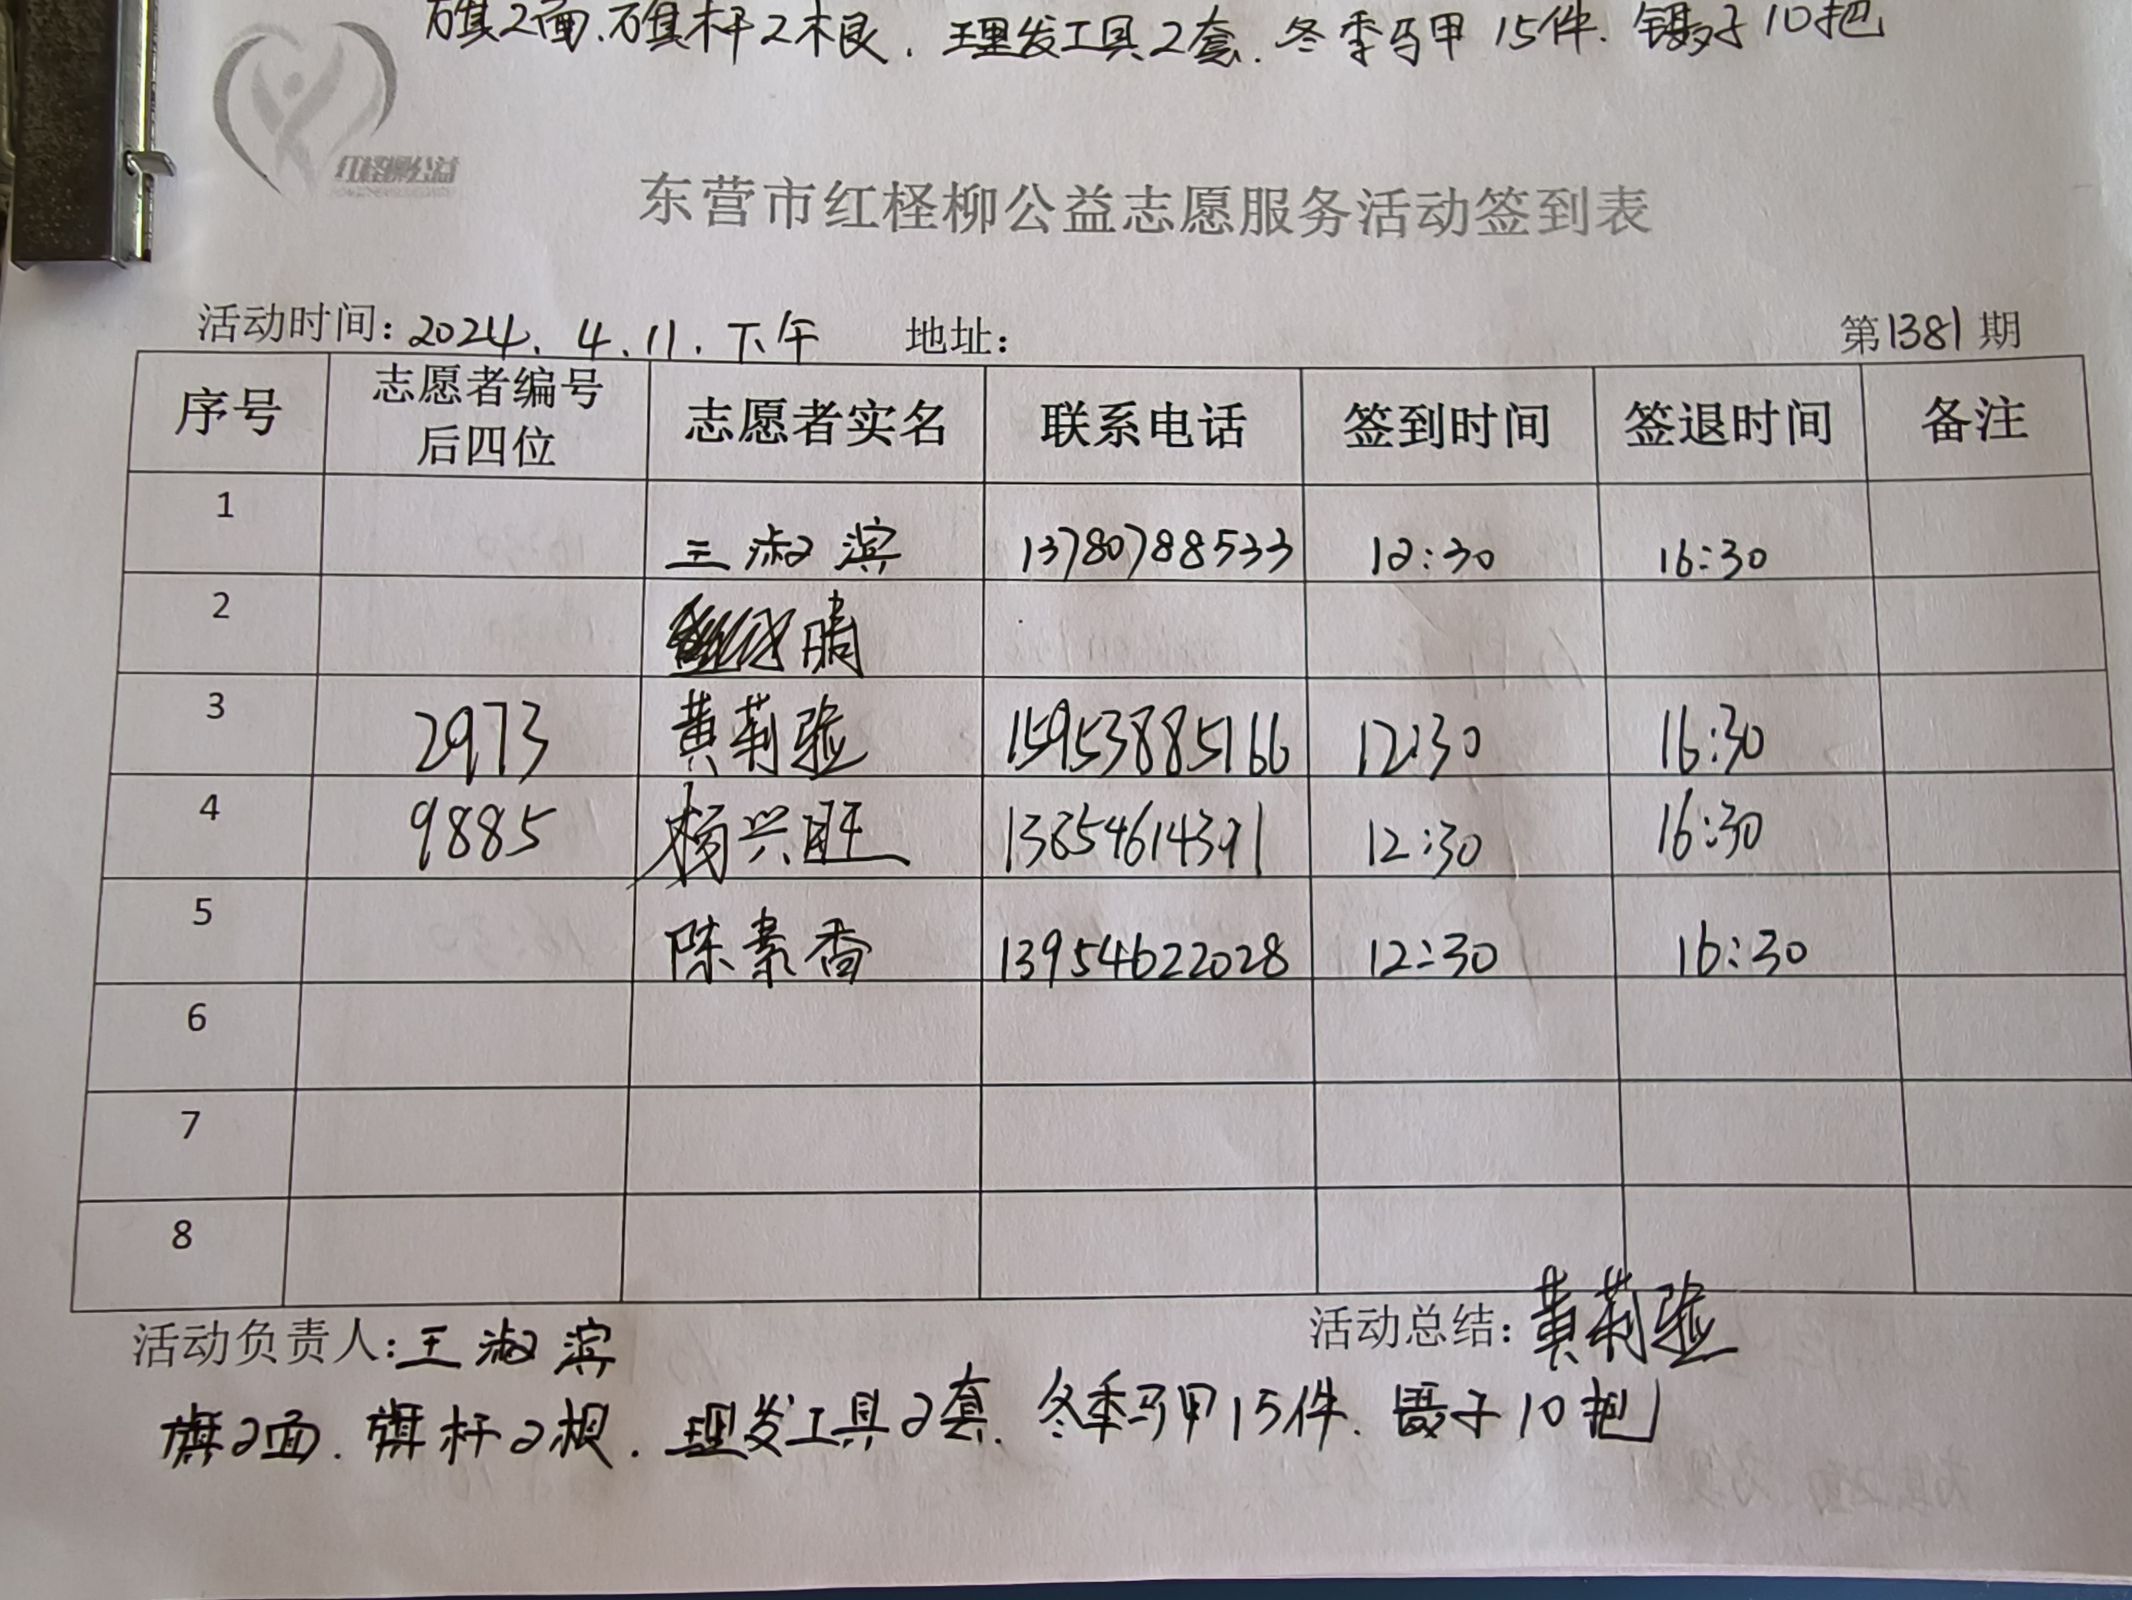 旗2面.旗杆2根.理发工具2套.冬季马甲15件.镊子10把
红柽柳公益
东营市红柽柳公益志愿服务活动签到表
活动时间：2024.4.11.下午 地址： 第1381期
序号 志愿者编号后四位 志愿者实名 联系电话 签到时间 签退时间 备注
1 王淑滨 13780788533 12:30 16:30
2
3 2973 黄莉 15953885166 12:30 16:30
4 9885 杨兴旺 13654614391 12:30 16:30
5 陈素香 13954622028 12:30 16:30
6
7
8
活动负责人：王淑滨 活动总结：黄莉
旗2面.旗杆2根.理发工具2套.冬季马甲15件.镊子10把